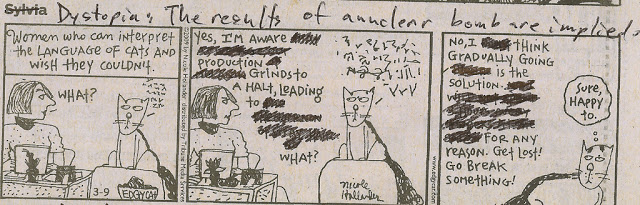 Sylvia Dystopia: The results of a nuclear bomb are implied.
WOMEN WHO CAN INTERPRET
THE LANGUAGE OF CATS AND
WISH THEY COULDN'T.
WHAT?
3-9
EDGYCAT
YES, I'M AWARE
PRODUCTION
GRINDS TO
A HALT, LEADING
TO
WHAT?
nicole
Hollander
NO, I THINK
GRADUALLY GOING
IS THE
SOLUTION.
FOR ANY
REASON. GET LOST!
GO BREAK
SOMETHING!
SURE,
HAPPY
TO.